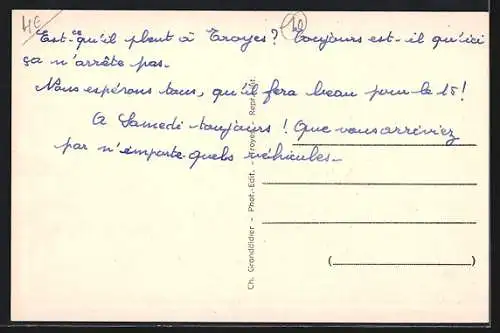 4€
10
Est-ce qu'il pleut à Troyes? Toujours est-il qu'ici
ça n'arrête pas.
Nous espérons tous, qu'il fera beau pour le 15!
A Samedi toujours! Que vous arriviez
par n'importe quels véhicules.
Ch. Grandidier - Phot.-Edit. - Troyes - Repr. Int.
(
)